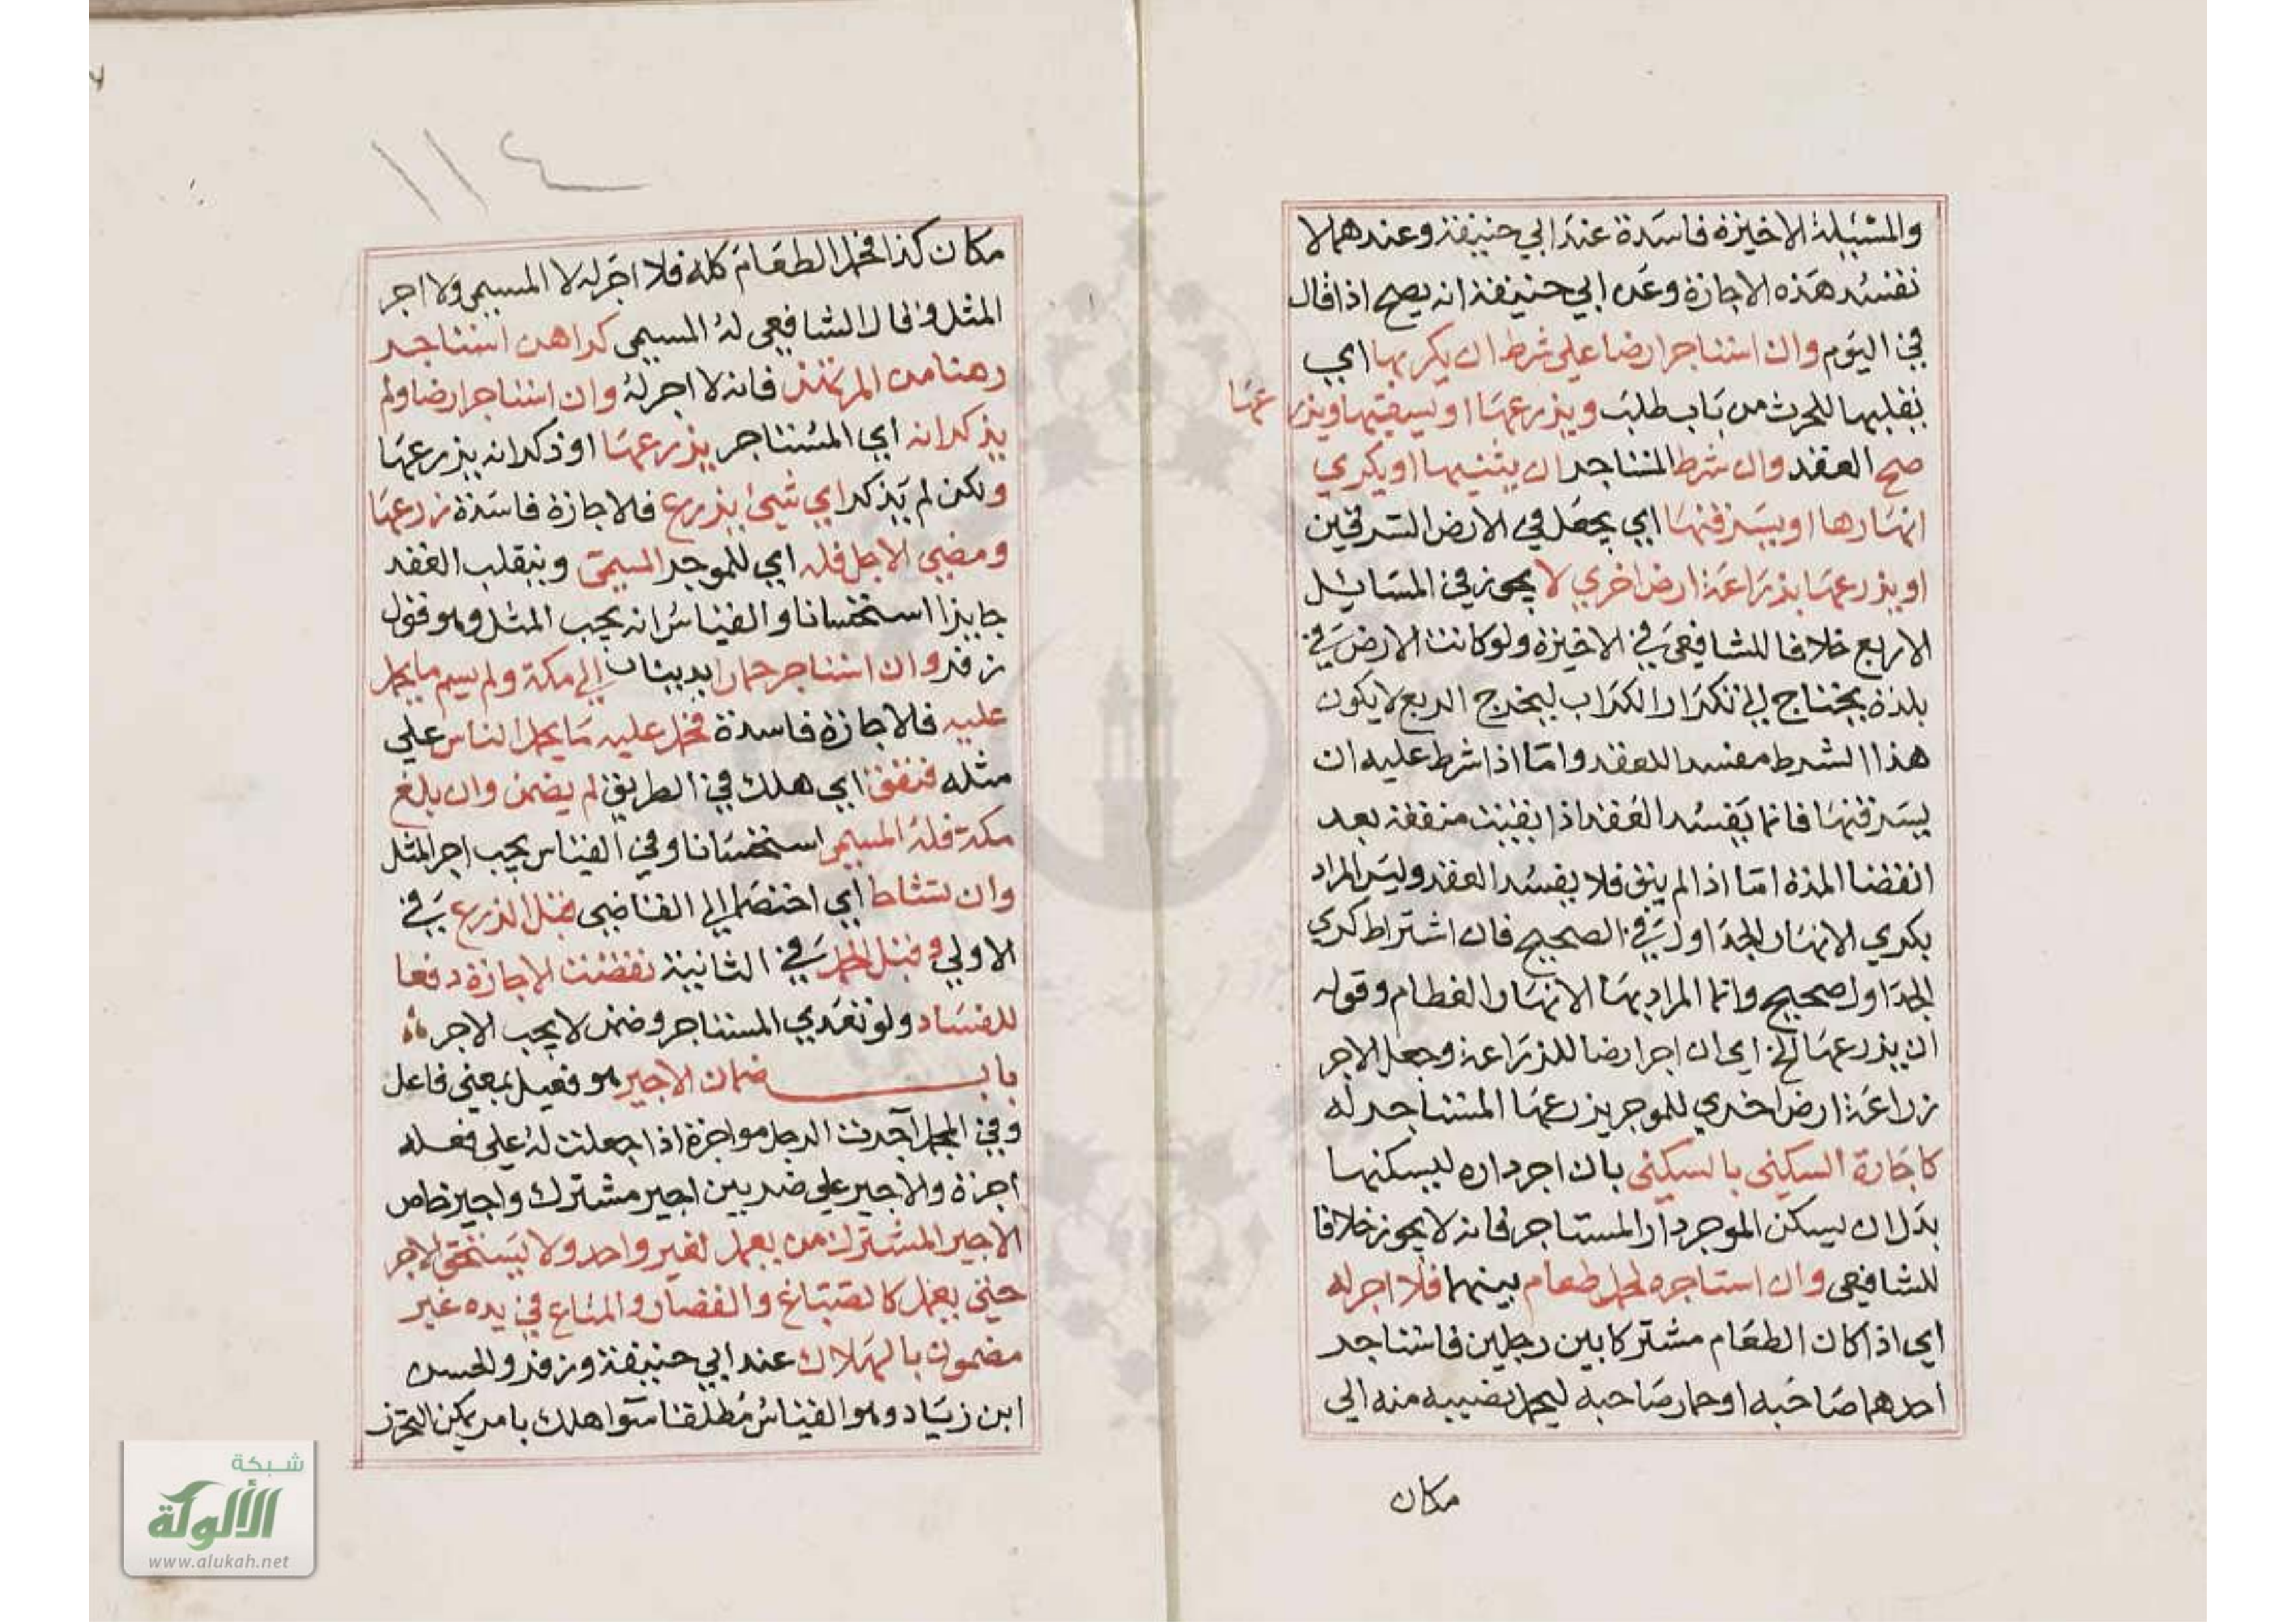 والمسئلة الاخيرة فاسدة عند ابي حنيفة وعندهما لا
تفسد هذه الاجارة وعن ابي حنيفة انه يصح اذا قال
في اليوم وان استاجر ارضا على شرط ان يكربها اي
يقلبها للحرث من باب طلب ويزرعها او يسقيها ويزرعها
صح العقد وان شرط المستاجر ان يثنيها او يكري
انهارها او يسرقنها اي يجعل في الارض السرقين
او يزرعها بزراعة ارض اخري لا يجوز في المسايل
الاربع خلافا للشافعي في الاخيرة ولو كانت الارض في
بلدة يحتاج الى تكرار الكراب ليخرج الريع لا يكون
هذا الشرط مفسدا للعقد واما اذا شرط عليه ان
يسرقنها فانما يفسد العقد اذا بقيت منفعة بعد
انقضا المدة اما اذا لم يبق فلا يفسد العقد وليس المراد
بكري الانهار الجداول في الصحيح فان اشتراط كري
الجداول صحيح وانما المراد بها الانهار العظام وقوله
ان يزرعها الخ اي ان اجر ارضا للزراعة وجعل الاجر
زراعة ارض اخري للموجر يزرعها المستاجر له
كاجارة السكنى بالسكنى بان اجر داره ليسكنها
بدل ان يسكن الموجر دار المستاجر فانه لا يجوز خلافا
للشافعي وان استاجره لحمل طعام بينهما فلا اجر له
اي اذا كان الطعام مشتركا بين رجلين فاستاجر
احدهما صاحبه او حمار صاحبه ليحمل نصيبه منه الى
مكان
١١٤
مكان كذا فحمل الطعام كله فلا اجر له لا المسمى ولا اجر
المثل وقال الشافعي له المسمى كراهن استاجر
رهنا من المرتهن فانه لا اجر له وان استاجر ارضا ولم
يذكر انه اي المستاجر يزرعها او ذكر انه يزرعها
ولكن لم يذكر اي شيئ يزرع فالاجارة فاسدة زرعها
ومضى الاجل فله اي للموجر المسمى وينقلب العقد
جايزا استحسانا والقياس انه يجب المثل وهو قول
زفر وان استاجر حمارا بديناب الى مكة ولم يسم ما يحمل
عليه فالاجارة فاسدة فحمل عليه ما يحمل الناس على
مثله فنفق اي هلك في الطريق لم يضمن وان بلغ
مكة فله المسمى استحسانا وفي القياس يجب اجر المثل
وان تشاحا اي اختصما الى القاضي قبل الزرع في
الاولى وقبل الحمل في الثانية نقضت الاجارة دفعا
للفساد ولو تعدي المستاجر وضمن لا يجب الاجر
باب ضمان الاجير هو فعيل بمعنى فاعل
وفي المجمل آجرت الرجل مواجرة اذا جعلت له على فعله
اجرة والاجير على ضربين اجير مشترك واجير خاص
الاجير المشترك من يعمل لغير واحد ولا يستحق الاجر
حتى يعمل كالصباغ والقصار والمتاع في يده غير
مضمون بالهلاك عند ابي حنيفة وزفر والحسن
ابن زياد وهو القياس مطلقا سوا هلك بامر يمكن التحرز
شبكة
الألوكة
www.alukah.net